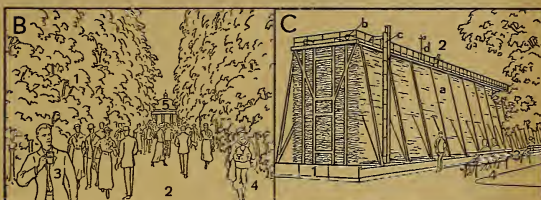 B
1
3
2
4
C
b
c
d
2
a
1